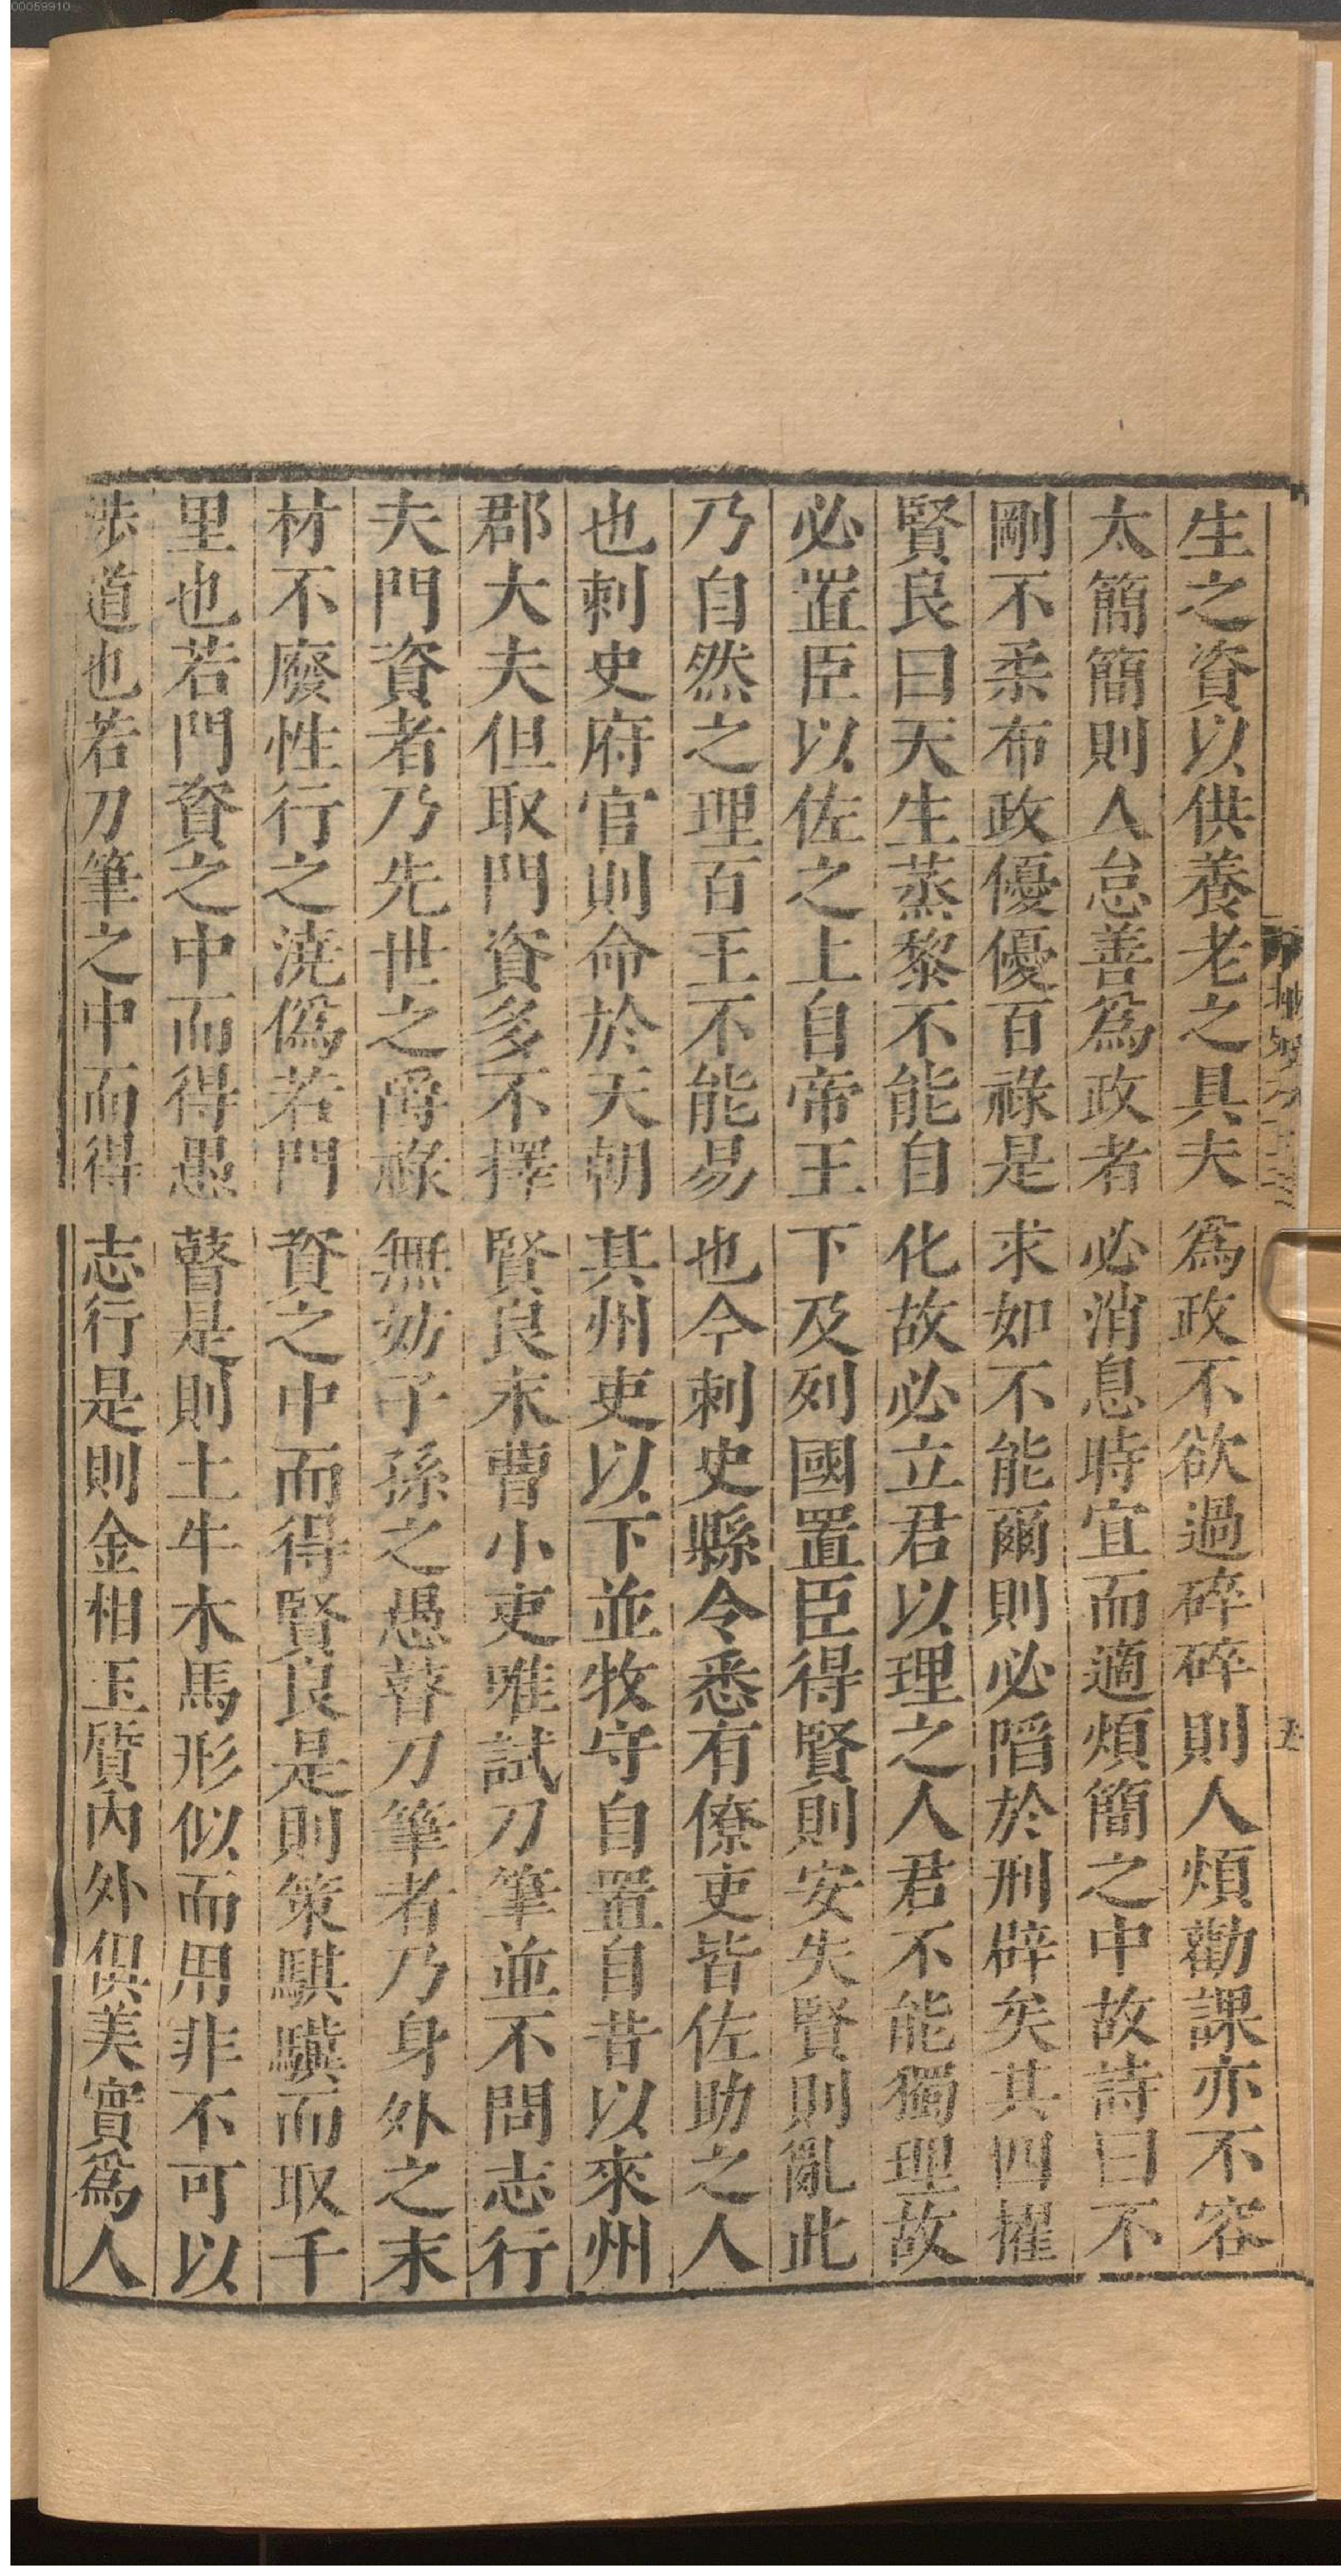 00059910
生之資以供養老之具夫爲政不欲過碎碎則人煩勸課亦不容
太簡簡則人怠善爲政者必消息時宜而適煩簡之中故詩曰不
剛不柔布政優優百祿是求如不能爾則必陷於刑辟矣其四擢
賢良曰天生蒸黎不能自化故必立君以理之人君不能獨理故
必置臣以佐之上自帝王下及列國置臣得賢則安失賢則亂此
乃自然之理百王不能易也今刺史縣令悉有僚吏皆佐助之人
也刺史府官則命於天朝其州吏以下並牧守自置自昔以來州
郡大夫但取門資多不擇賢良末曹小吏唯試刀筆並不問志行
夫門資者乃先世之爵祿無妨子孫之愚瞽刀筆者乃身外之末
材不廢性行之澆偽若門資之中而得賢良是則策騏驥而取千
里也若門資之中而得愚瞽是則土牛木馬形似而用非不可以
涉道也若刀筆之中而得志行是則金相玉質內外俱美實爲人
五